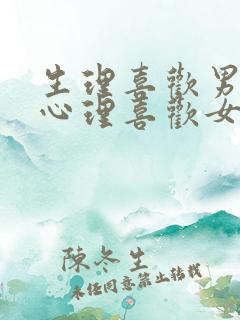 生理喜歡男
心理喜歡女
陳冬生
未經同意禁止轉載